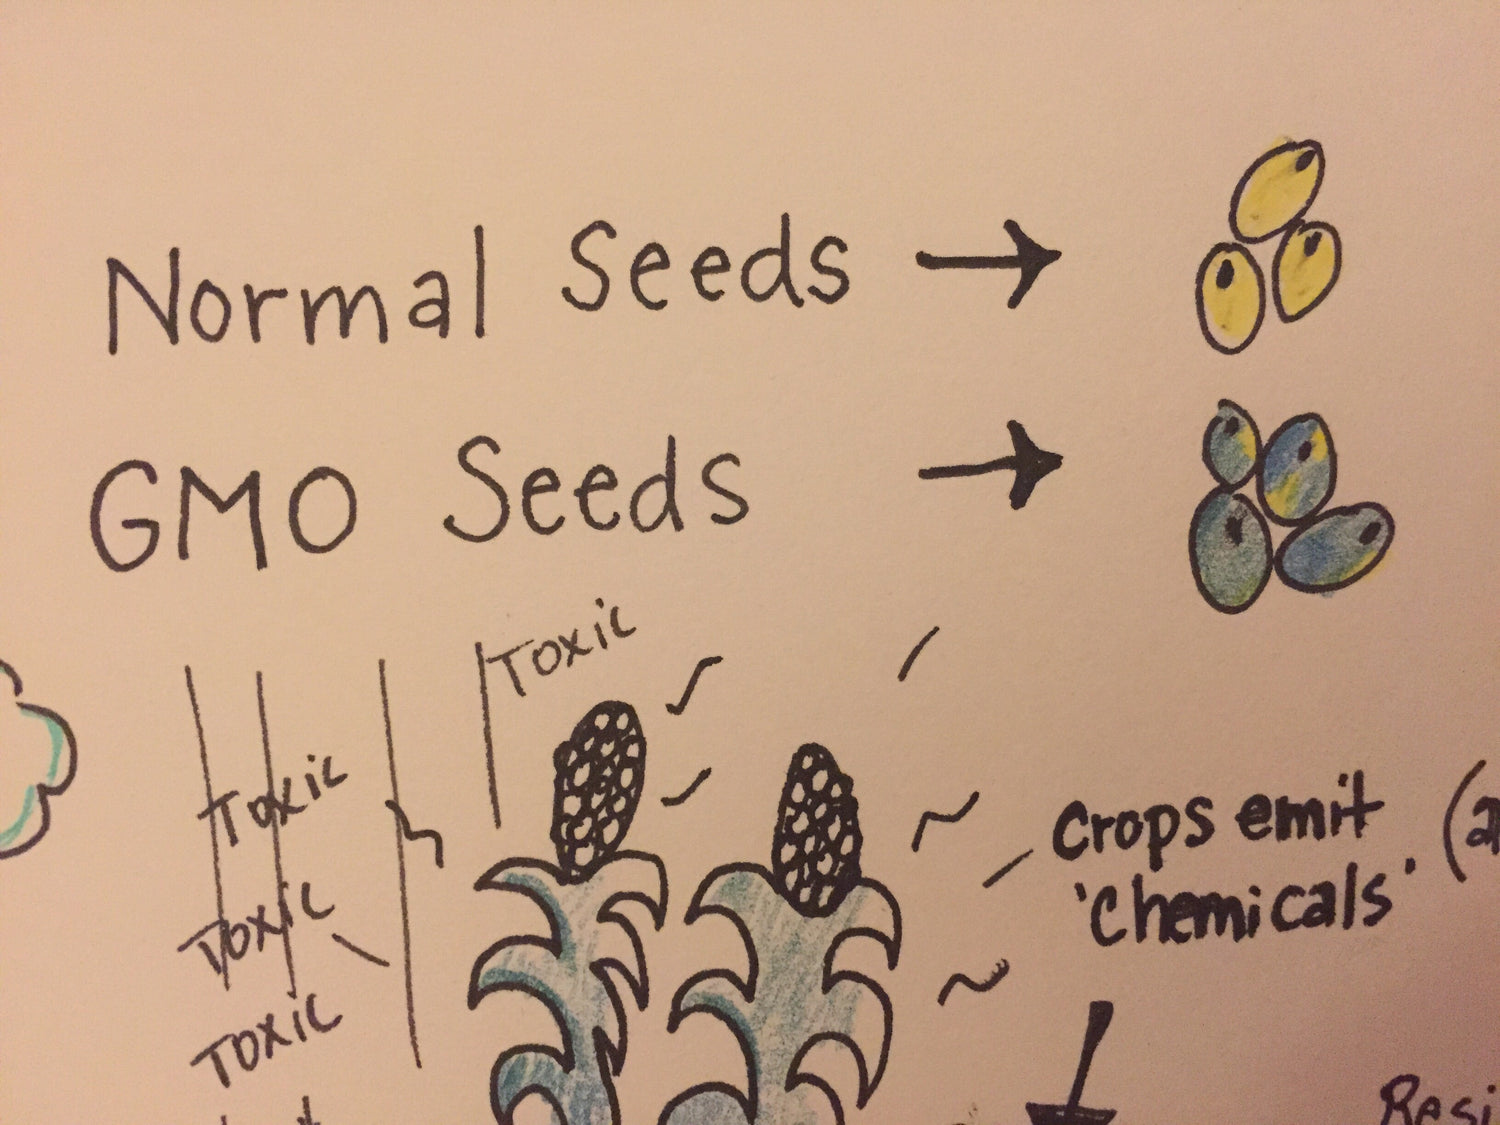 Normal Seeds
GMO Seeds
Toxic
Toxic
Toxic
Toxic
Crops emit
'Chemicals'